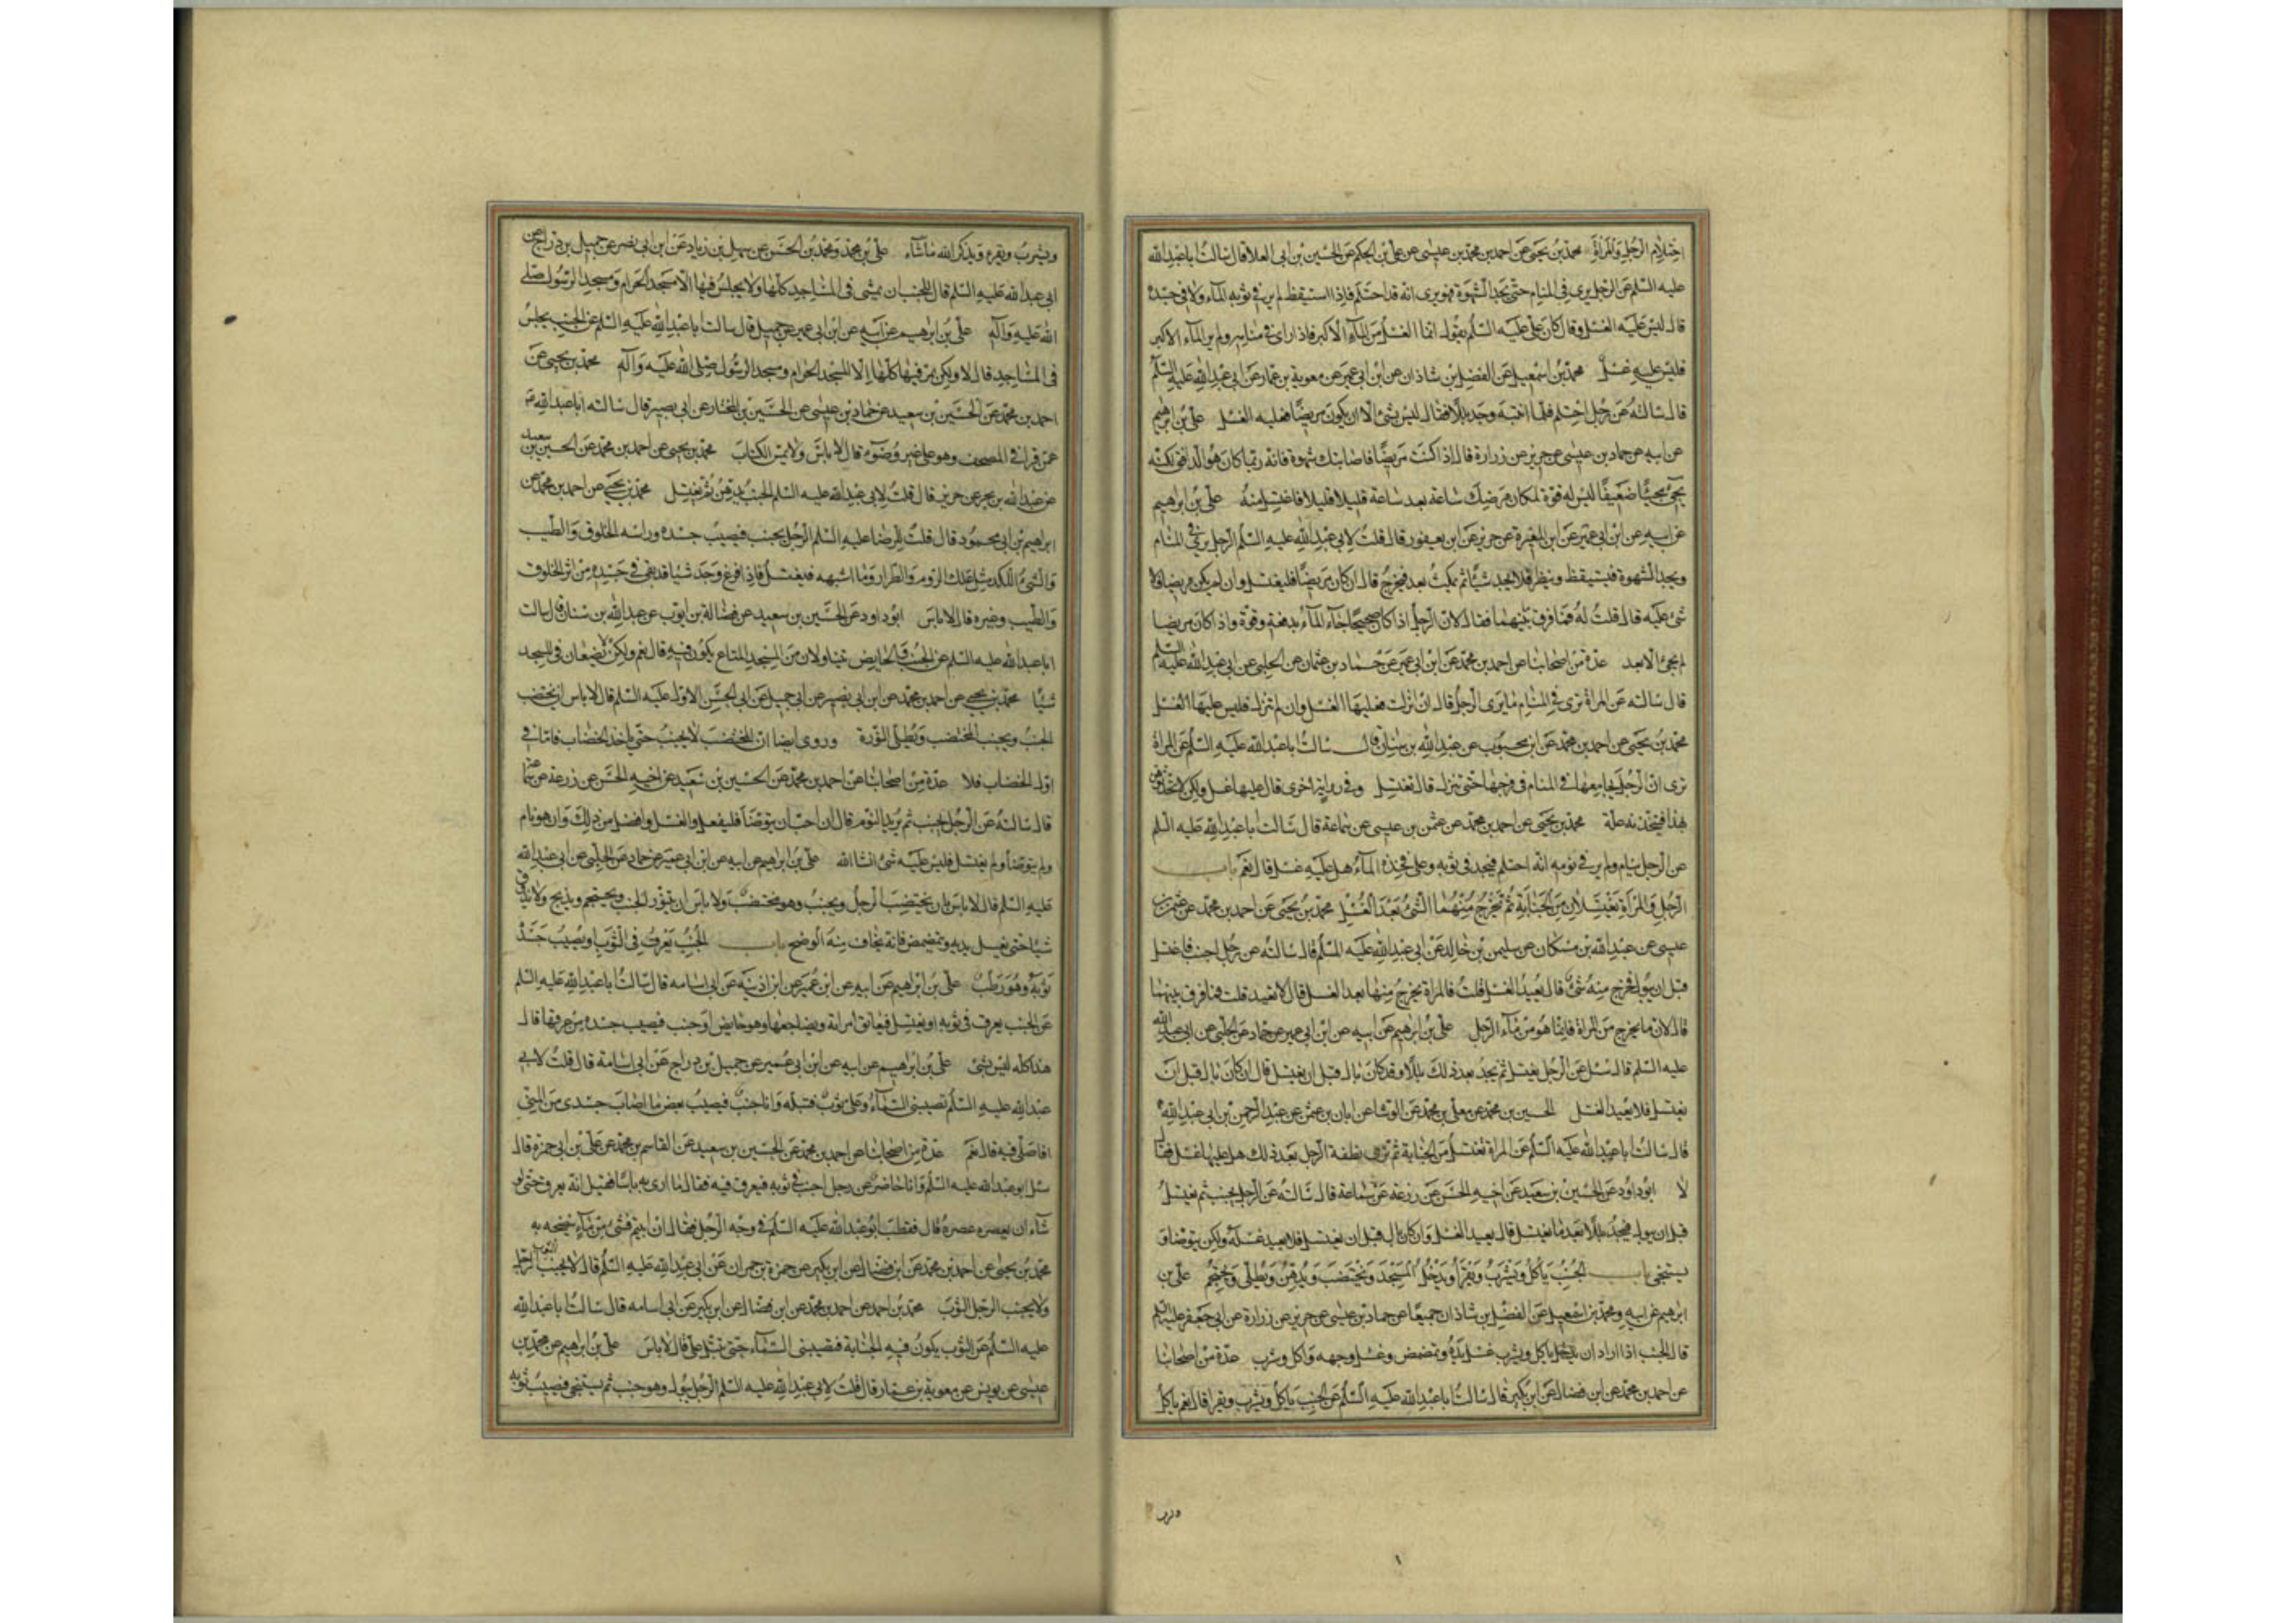 احتلام الرجل والمرأة محمد بن يحيى عن احمد بن محمد بن عيسى عن على بن الحكم عن الحسين بن ابى العلا قال سالت ابا عبد الله
عليه السلم عن الرجل يرى فى المنام حتى يجد الشهوة فهو يرى انه قد احتلم فاذا استيقظ لم ير فى ثوبه الماء ولا فى جسده
قال ليس عليه الغسل وقال كان على عليه السلم يقول انما الغسل من الماء الاكبر فاذا راى فى منامه ولم ير الماء الاكبر
فليس عليه غسل محمد بن اسمعيل عن الفضل بن شاذان عن ابن ابى عمير عن معوية بن عمار عن ابى عبد الله عليه السلم
قال سالته عن رجل احتلم فلما انتبه وجد بللا فقال ليس بشئ الا ان يكون مريضا فعليه الغسل على بن ابرهيم
عن ابيه عن حماد بن عيسى عن حريز عن زرارة قال اذا كنت مريضا فاصابتك شهوة فانه ربما كان هو الدافق لكنه
يجئ مجيئا ضعيفا ليس له قوة لمكان مرضك ساعة بعد ساعة قليلا قليلا فاغتسل منه على بن ابراهيم
عن ابيه عن ابن ابى عمير عن ابن المغيرة عن حريز عن ابن يعفور قال قلت لابى عبد الله عليه السلم الرجل يرى فى المنام
ويجد الشهوة فيستيقظ وينظر فلا يجد شيئا ثم يمكث بعد فيخرج قال ان كان مريضا فليغتسل وان لم يكن مريضا فلا
شئ عليه قال قلت له فما فرق بينهما فقال لان الرجل اذا كان صحيحا جاء الماء بدفعة وقوة واذا كان مريضا
لم يجئ الا بعد عدة من اصحابنا عن احمد بن محمد عن ابن ابى عمير عن حماد بن عثمان عن الحلبى عن ابى عبد الله عليه السلم
قال سالته عن المراة ترى فى المنام ما يرى الرجل قال ان انزلت فعليها الغسل وان لم تنزل فليس عليها الغسل
محمد بن يحيى عن احمد بن محمد عن ابن محبوب عن عبد الله بن سنان قال سالت ابا عبد الله عليه السلم عن المراة
ترى ان الرجل يجامعها فى المنام فى فرجها حتى تنزل قال تغتسل وفى رواية اخرى قال عليها غسل ولكن لا تحدثوهن
بهذا فيتخذنه علة محمد بن يحيى عن احمد بن محمد عن عثمن بن عيسى عن سماعة قال سالت ابا عبد الله عليه السلم
عن الرجل ينام ولم ير فى نومه انه احتلم فيجد فى ثوبه وعلى فخذه الماء هل عليه غسل قال نعم باب
الرجل والمرأة يغتسلان من الجنابة ثم يخرج منهما الشئ بعد الغسل محمد بن يحيى عن احمد بن محمد عن عثمن بن
عيسى عن عبد الله بن مسكان عن سليمن بن خالد عن ابى عبد الله عليه السلم قال سالته عن رجل اجنب فاغتسل
قبل ان يبول فخرج منه شئ قال يعيد الغسل قلت فالمراة يخرج منها بعد الغسل قال لا تعيد قلت فما فرق بينهما
قال لان ما يخرج من المراة فانما هو من ماء الرجل على بن ابرهيم عن ابيه عن ابن ابى عمير عن حماد عن الحلبى عن ابى عبد الله
عليه السلم قال سئل عن الرجل يغتسل ثم يجد بعد ذلك بللا وقد كان بال قبل ان يغتسل قال ان كان بال قبل ان
يغتسل فلا يعيد الغسل الحسين بن محمد عن معلى بن محمد عن الوشا عن ابان بن عثمن عن عبد الرحمن بن ابى عبد الله
قال سالت ابا عبد الله عليه السلم عن المراة تغتسل من الجنابة ثم ترى نطفة الرجل بعد ذلك هل عليها غسل فقال
لا ابو داود عن الحسين بن سعيد عن اخيه الحسن عن زرعة عن سماعة قال سالته عن الرجل يجنب ثم يغتسل
قبل ان يبول فيجد بللا بعد ما يغتسل قال يعيد الغسل وان كان بال قبل ان يغتسل فلا يعيد غسله ولكن يتوضا و
يستنجى باب الجنب يأكل ويشرب ويقرأ ويدخل المسجد ويختضب ويدهن ويطلى ويحتجم على بن
ابرهيم عن ابيه ومحمد بن اسمعيل عن الفضل بن شاذان جميعا عن حماد بن عيسى عن حريز عن زرارة عن ابى جعفر عليه السلم
قال الجنب اذا اراد ان ياكل ويشرب غسل يده وتمضمض وغسل وجهه واكل وشرب عدة من اصحابنا
عن احمد بن محمد عن ابن فضال عن ابن بكير قال سالت ابا عبد الله عليه السلم عن الجنب ياكل ويشرب ويقرا قال نعم ياكل
ويشرب ويقرء ويذكر الله ما شاء على بن محمد ومحمد بن الحسن عن سهل بن زياد عن ابن ابى نصر عن جميل بن دراج عن
ابى عبد الله عليه السلم قال للجنب ان يمشى فى المساجد كلها ولا يجلس فيها الا مسجد الحرام ومسجد الرسول صلى
الله عليه وآله على بن ابرهيم عن ابيه عن ابن ابى عمير عن جميل قال سالت ابا عبد الله عليه السلم عن الجنب يجلس
فى المساجد قال لا ولكن يمر فيها كلها الا المسجد الحرام ومسجد الرسول صلى الله عليه وآله محمد بن يحيى عن
احمد بن محمد عن الحسين بن سعيد عن حماد بن عيسى عن الحسين بن المختار عن ابى بصير قال سالته ابا عبد الله
عمن قرا فى المصحف وهو على غير وضوء قال لا باس ولا يمس الكتاب محمد بن يحيى عن احمد بن محمد عن الحسين بن سعيد
عن عبد الله بن بحر عن حريز قال قلت لابى عبد الله عليه السلم الجنب يدهن ثم يغتسل محمد بن يحيى عن احمد بن محمد عن
ابراهيم بن ابى محمود قال قلت للرضا عليه السلم الرجل يجنب فيصيب جسده وراسه الخلوق والطيب
والشئ اللكد مثل علك الروم والطرار وما اشبهه فيغتسل فاذا فرغ وجد شيئا قد بقى فى جسده من اثر الخلوق
والطيب وغيره قال لا باس ابو داود عن الحسين بن سعيد عن فضالة بن ايوب عن عبد الله بن سنان قال سالت
ابا عبد الله عليه السلم عن الجنب والحايض يتناولان من المسجد المتاع يكون فيه قال نعم ولكن لا يضعان فى المسجد
شيئا محمد بن يحيى عن احمد بن محمد عن ابن ابى نصر عن ابى جميلة عن ابى الحسن الاول عليه السلم قال لا باس ان يختضب
الجنب ويجنب المختضب ويطلى النورة وروى ايضا ان المختضب لا يجنب حتى ياخذ الخضاب فاما فى
اول الخضاب فلا عدة من اصحابنا عن احمد بن محمد عن الحسين بن سعيد عن اخيه الحسن عن زرعة عن سماعة
قال سالته عن الرجل يجنب ثم يريد النوم قال ان احب ان يتوضا فليفعل والغسل افضل من ذلك وان هو نام
ولم يتوضا ولم يغتسل فليس عليه شئ انشا الله على بن ابراهيم عن ابيه عن ابن ابى عمير عن حماد عن الحلبى عن ابى عبد الله
عليه السلم قال لا باس بان يختضب الرجل ويجنب وهو مختضب ولا باس ان يتنور الجنب ويحتجم ويذبح ولا يذوق
شيئا حتى يغسل يديه ويتمضمض فانه يخاف منه الوضح باب الجنب يعرق فى الثوب او يصيب جسده
ثوبه وهو رطب على بن ابراهيم عن ابيه عن ابن عمير عن ابن اذينة عن ابى اسامه قال سالت ابا عبد الله عليه السلم
عن الجنب يعرق فى ثوبه او يغتسل فيعانق امراته ويضاجعها وهى حايض او جنب فيصيب جسده من عرقها قال
هذا كله ليس بشئ على بن ابرهيم عن ابيه عن ابن ابى عمير عن جميل بن دراج عن ابى اسامة قال قلت لابى
عبد الله عليه السلم تصيبنى السماء وعلى ثوب فتبله وانا جنب فيصيب بعض ما اصاب جسدى من المنى
افاصلى فيه قال نعم عدة من اصحابنا عن احمد بن محمد عن الحسين بن سعيد عن القاسم بن محمد عن على بن ابى حمزة قال
سئل ابو عبد الله عليه السلم وانا حاضر عن رجل اجنب فى ثوبه فيعرق فيه فقال ما ارى به باسا فقيل انه يعرق حتى لو
شاء ان يعصره عصره قال فقطب ابو عبد الله عليه السلم فى وجه الرجل فقال ان ابيتم فشئ من ماء ينضحه به
محمد بن يحيى عن احمد بن محمد عن ابن فضال عن ابن بكير عن حمزة بن حمران عن ابى عبد الله عليه السلم قال لا يجنب الثوب الرجل
ولا يجنب الرجل الثوب محمد بن احمد عن احمد بن محمد عن ابن فضال عن ابن بكير عن ابى اسامه قال سالت ابا عبد الله
عليه السلم عن الثوب يكون فيه الجنابة فتصيبنى السماء حتى تبتل على قال لا باس على بن ابراهيم عن محمد بن
عيسى عن يونس عن معوية بن عمار قال قلت لابى عبد الله عليه السلم الرجل يبول وهو جنب ثم يستنجى فيصيب ثوبه